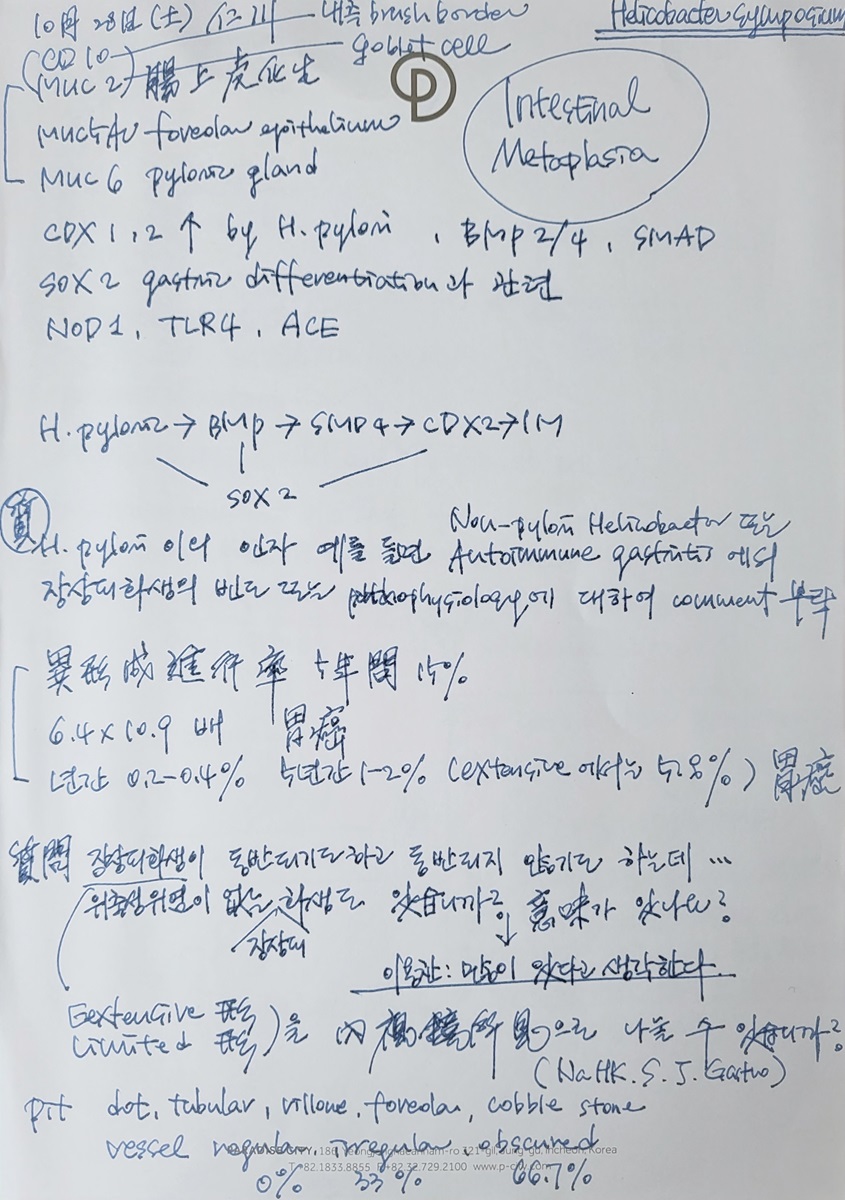 10月 28日 (土) 仁川 내측 brush border Helicobacter Symposium
(CD 10) goblet cell
MUC 2 腸上皮化生
MUC5AC foveolar epithelium
MUC 6 pyloric gland
Intestinal
Metaplasia
CDX 1, 2 ↑ by H. pylori, BMP 2/4, SMAD
SOX 2 gastric differentiation과 관련
NOD1, TLR4, ACE
H. pylori → BMP → SMD4 → CDX2 → IM
SOX 2
質
Non-pylori Helicobacter 또는
H. pylori 이외 인자 예를 들면 Autoimmune gastritis 에서
장상피화생의 빈도 또는 pathophysiology에 대하여 comment 부탁
異形成 進行率 5年間 15%
6.4 x 10.9 배 胃癌
년간 0.2-0.4% 5년간 1-2% (extensive 에서는 5.8%) 胃癌
質問 장상피화생이 동반되기도 하고 동반되지 않기도 하는데 ...
위축성위염이 없는 화생도 있습니까? 意味가 있나요?
장상피
이용찬: 많이 있다고 생각한다.
extensive 形
limited 形 ) 을 內視鏡所見으로 나눌 수 있습니까?
(Na HK. S. J. Gastro)
pit dot, tubular, villous, foveolar, cobble stone
vessel regular, irregular, obscured
PARADISE CITY, 186, Yeongjonghaeannam-ro 321-gil, Jung-gu, Incheon, Korea
T +82.1833.8855 F +82.32.729.2100 www.p-city.com
0% 33% 66.7%